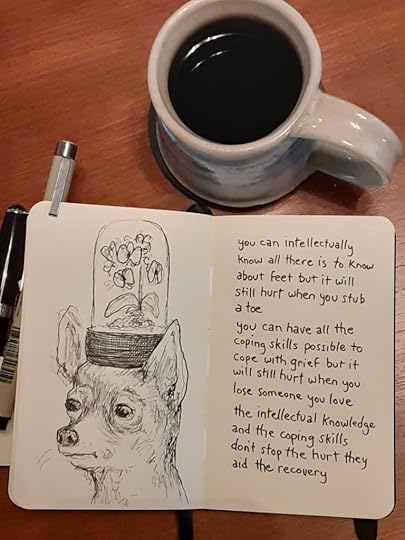 you can intellectually
know all there is to know
about feet but it will
still hurt when you stub
a toe
you can have all the
coping skills possible to
cope with grief but it
will still hurt when you
lose someone you love
the intellectual knowledge
and the coping skills
don't stop the hurt they
aid the recovery